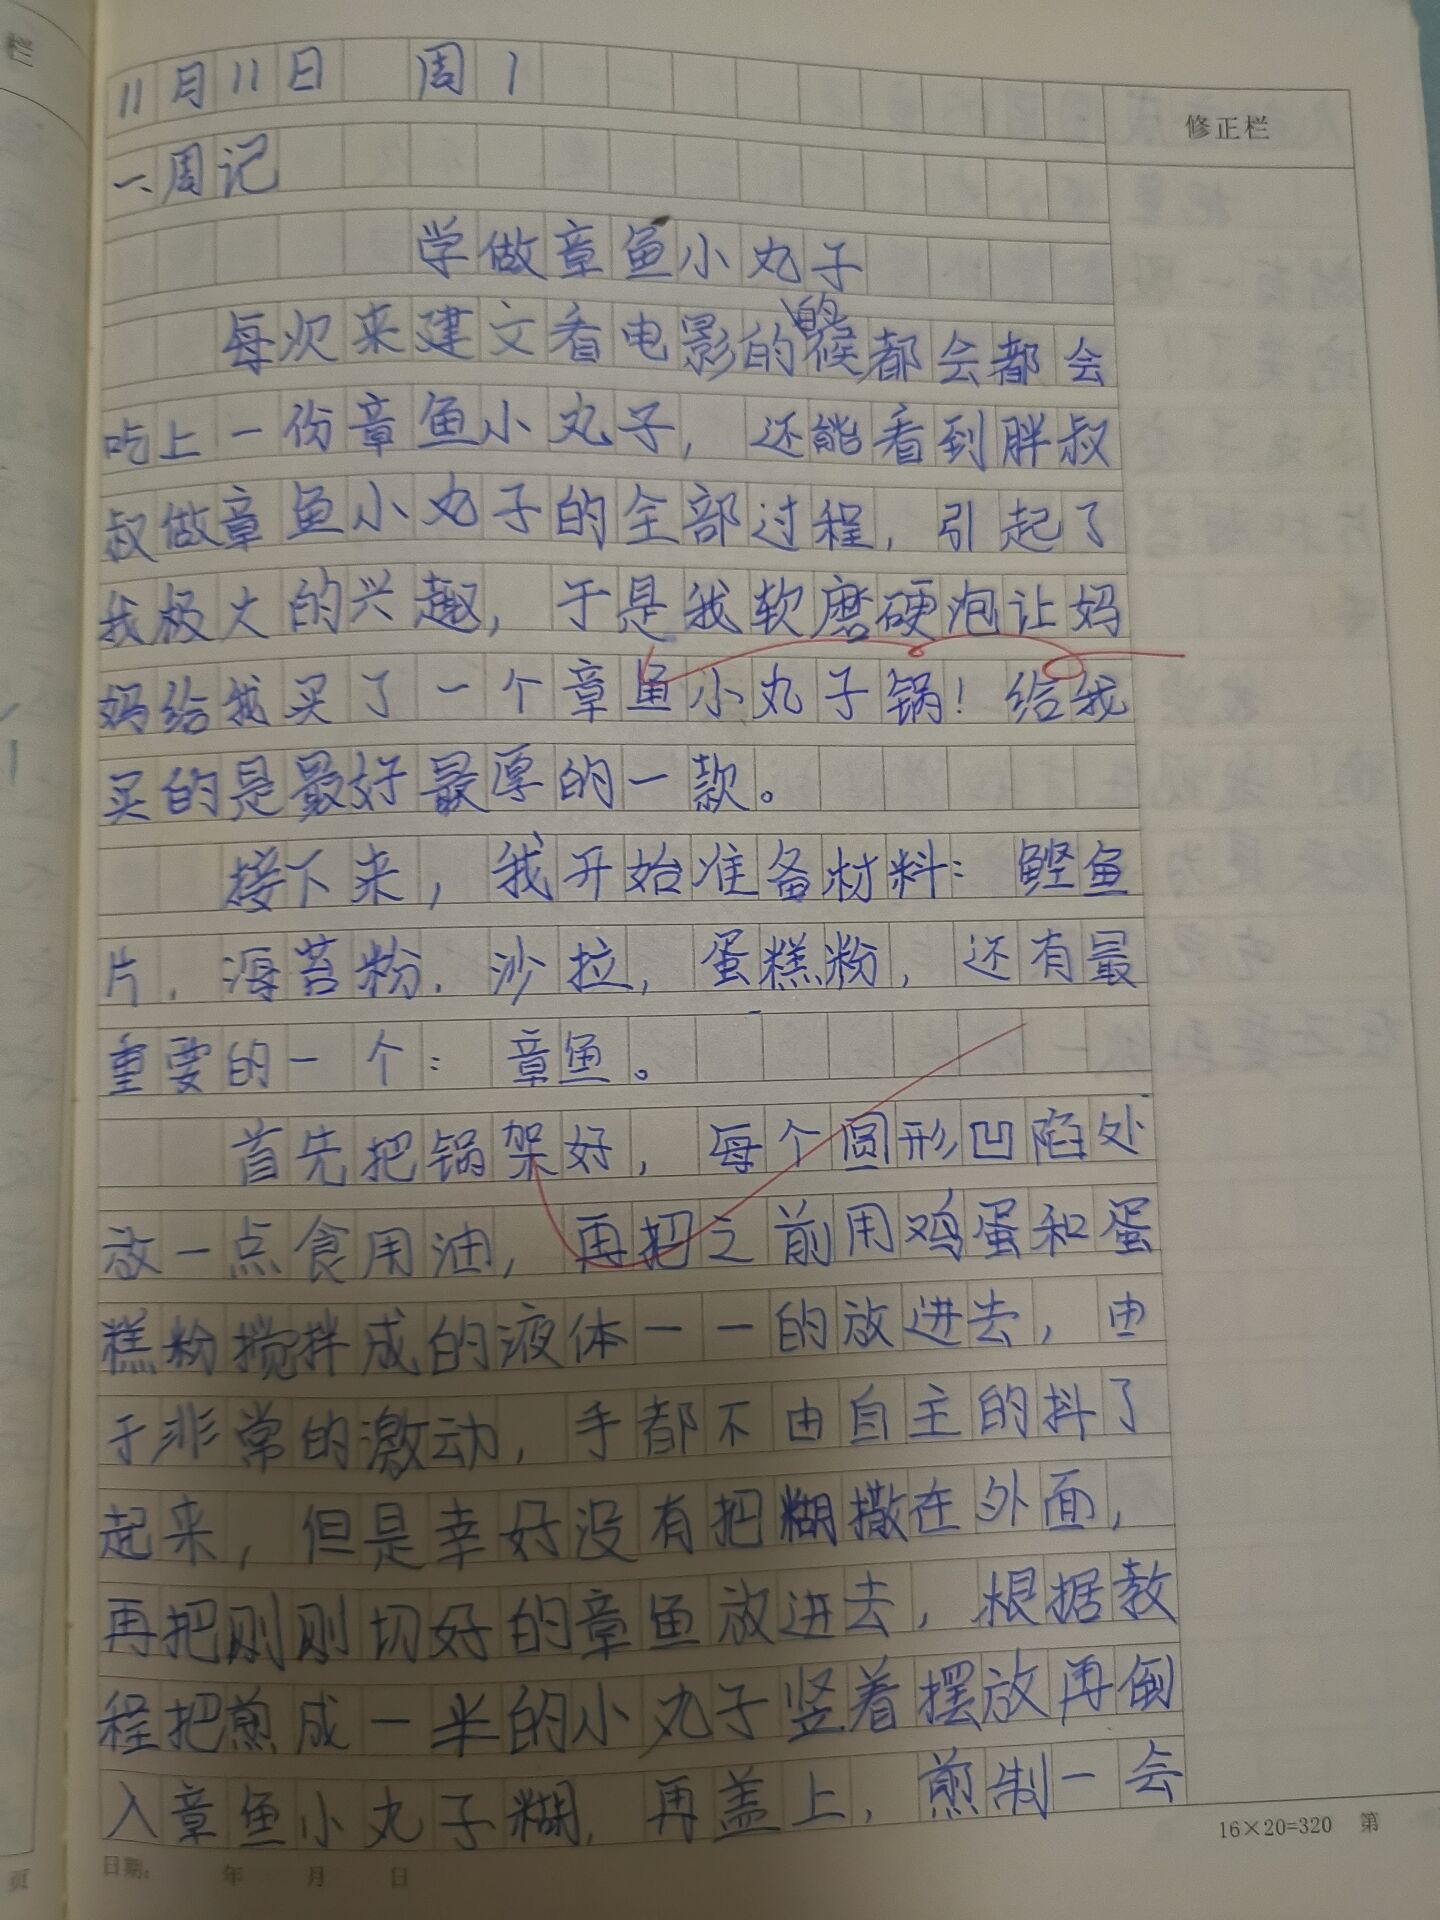 栏
11月11日 周1
修正栏
一、周记
学做章鱼小丸子
每次来建文看电影的时候都会都会
吃上一份章鱼小丸子，还能看到胖叔
叔做章鱼小丸子的全部过程，引起了
我极大的兴趣，于是我软磨硬泡让妈
妈给我买了一个章鱼小丸子锅！给我
买的是最好最厚的一款。
接下来，我开始准备材料：鲣鱼
片，海苔粉，沙拉，蛋糕粉，还有最
重要的一个：章鱼。
首先把锅架好，每个圆形凹陷处
放一点食用油，再把之前用鸡蛋和蛋
糕粉搅拌成的液体一一的放进去，由
于非常的激动，手都不由自主的抖了
起来，但是幸好没有把糊撒在外面，
再把刚刚切好的章鱼放进去，根据教
程把煎成一半的小丸子竖着摆放再倒
入章鱼小丸子糊，再盖上，煎制一会
16×20=320 第
日期： 年 月 日
页